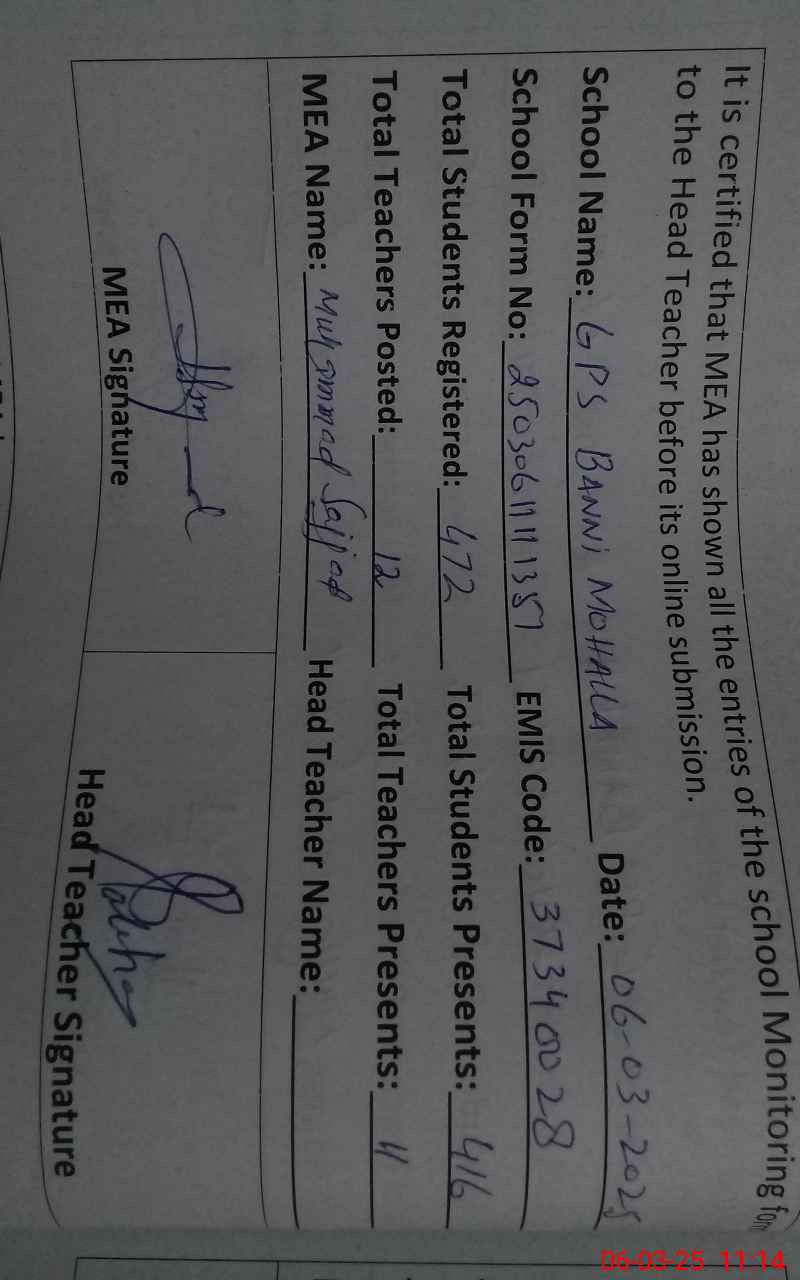 It is certified that MEA has shown all the entries of the school Monitoring form
to the Head Teacher before its online submission.
School Name: GPS BANNI MOHALLA Date: 06-03-2025
School Form No: EMIS Code: 37340028
Total Students Registered: 472 Total Students Presents: 416
Total Teachers Posted: 12 Total Teachers Presents: 11
MEA Name: Muhammad Sajjad Head Teacher Name:
MEA Signature Head Teacher Signature
06-03-25 11:14